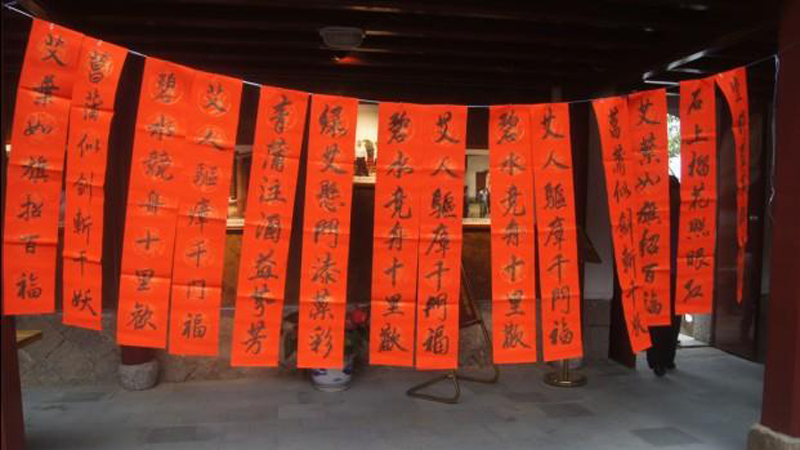 艾葉如旗招百福
菖蒲似劍斬千妖
碧水競舟十里歡
艾人驅瘴千門福
青蒲注酒益芬芳
綠艾懸門
碧水竞舟十里歡
艾人驅瘴千门福
碧水竞舟十里歡
艾人驅瘴千门福
菖蒲似劍斬千妖
艾葉如旗招百福
石上榴花照眼紅